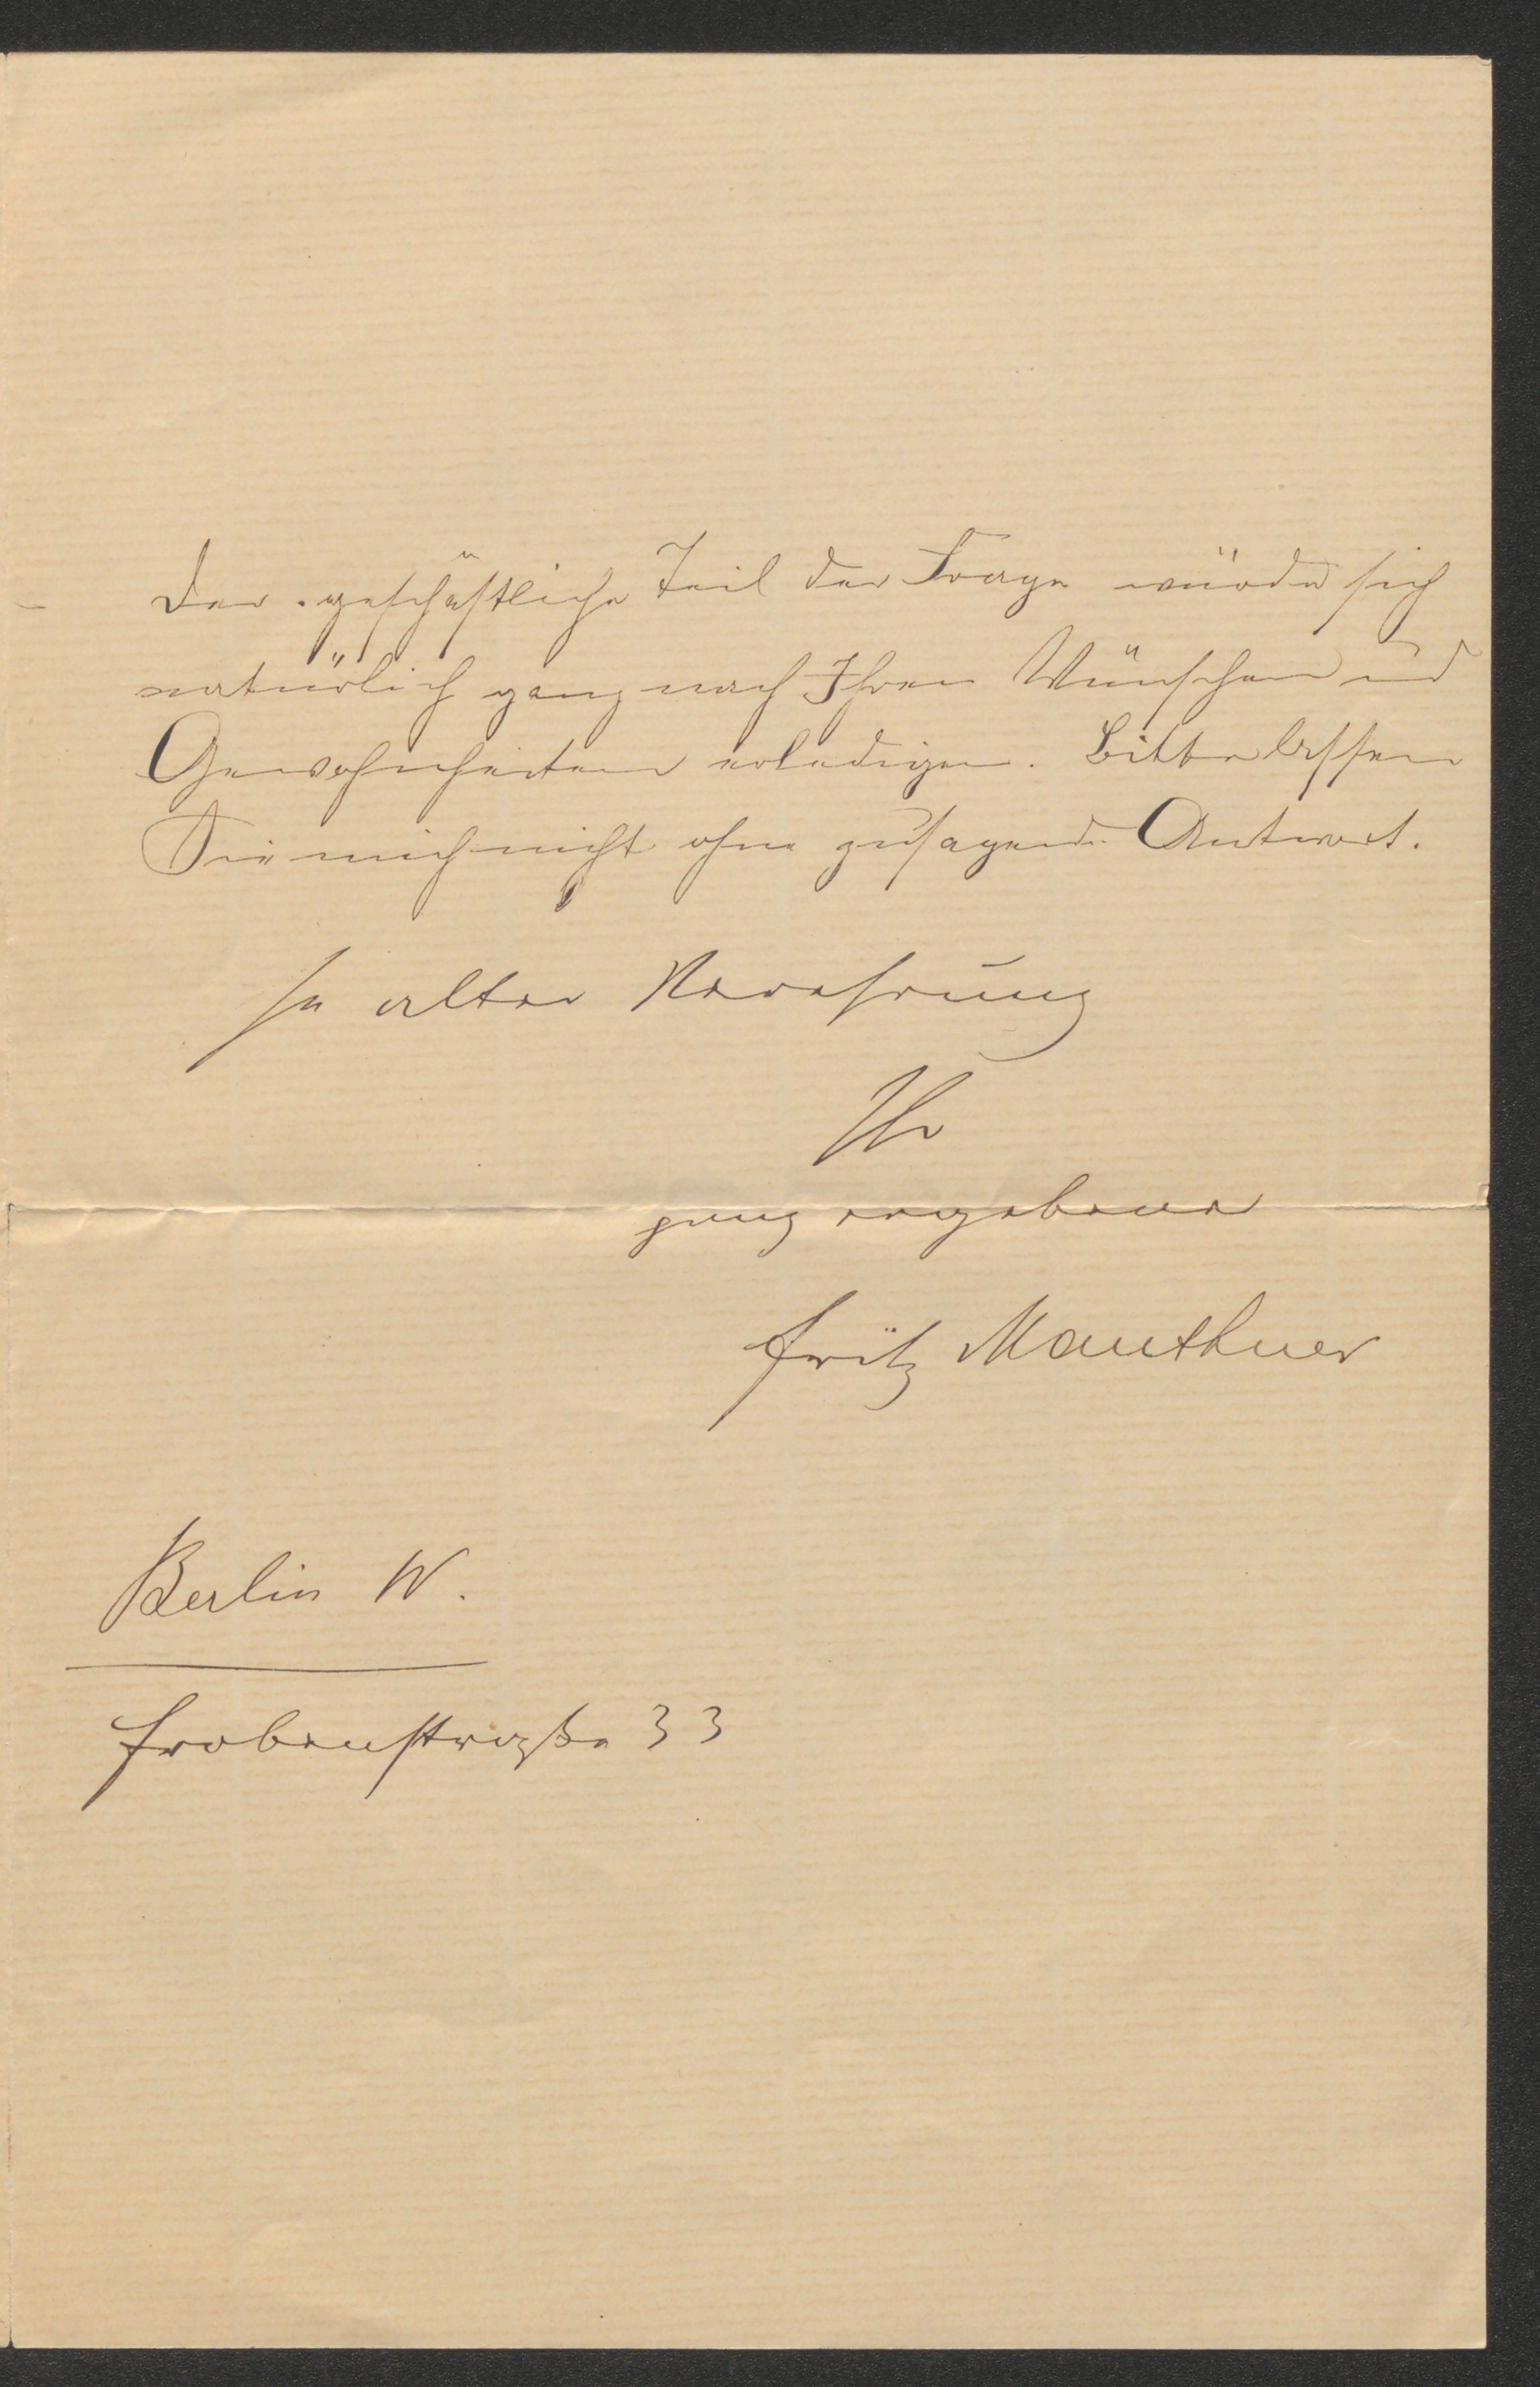 Der geschäftliche Teil der Frage würde sich
natürlich ganz nach Ihren Wünschen und
Gewohnheiten erledigen. Bitte lassen
Sie mich nicht ohne zusagende Antwort.
In alter Verehrung
Ihr
ganz ergebener
Fritz Mauthner
Berlin W.
Frobenstraße 33